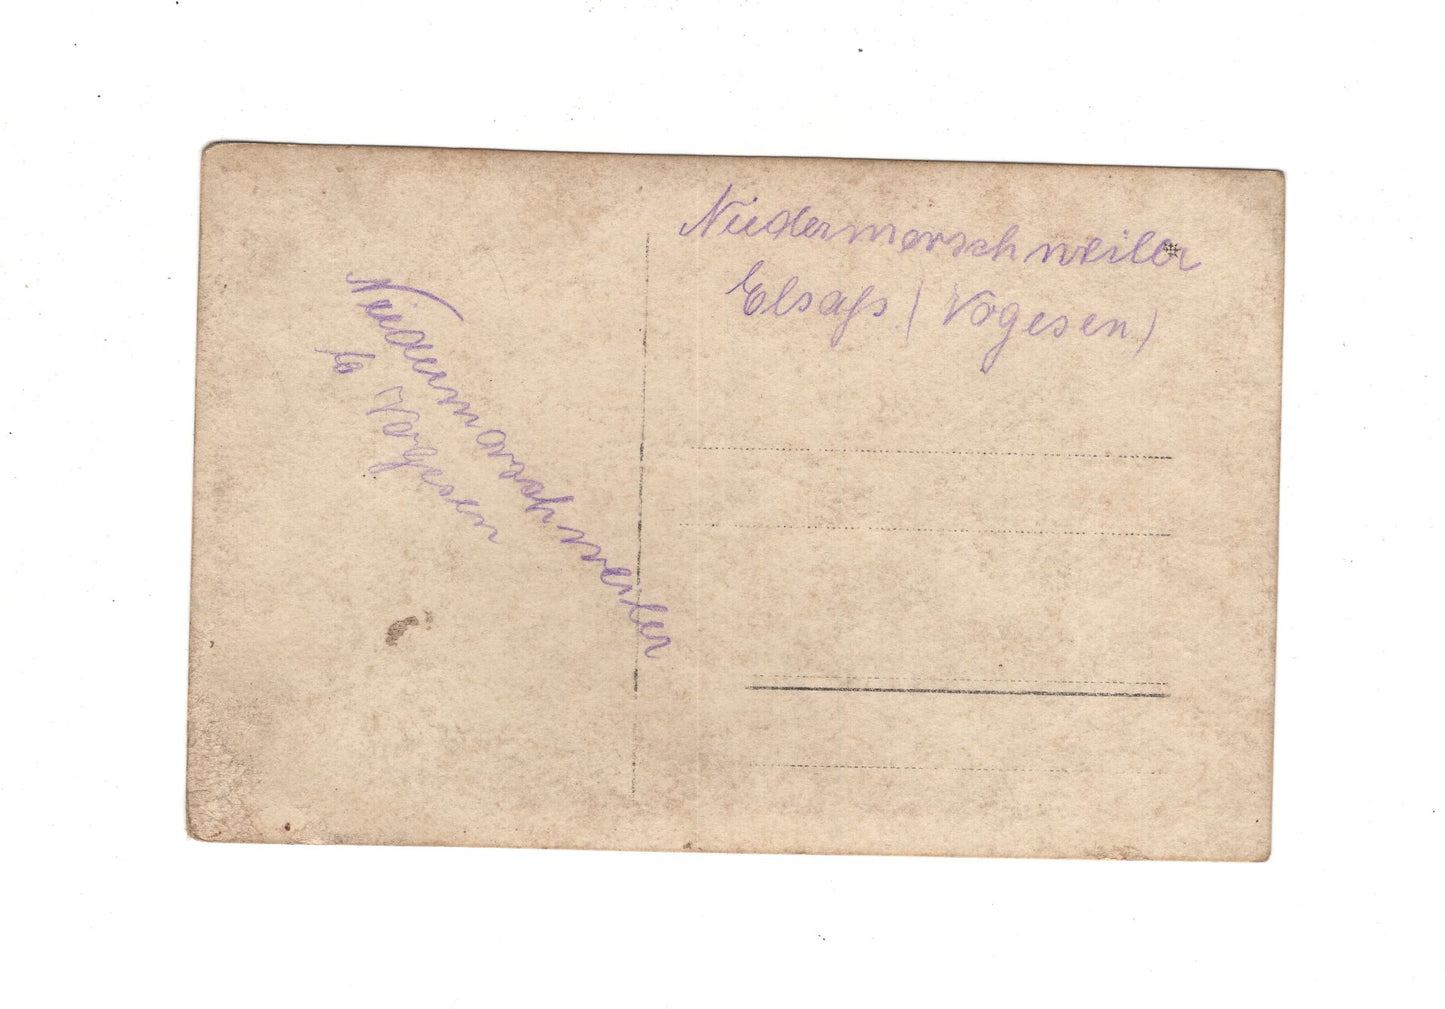 Niedermorschweiler
Elsaß (Vogesen)
Niedermorschweiler
Vogesen